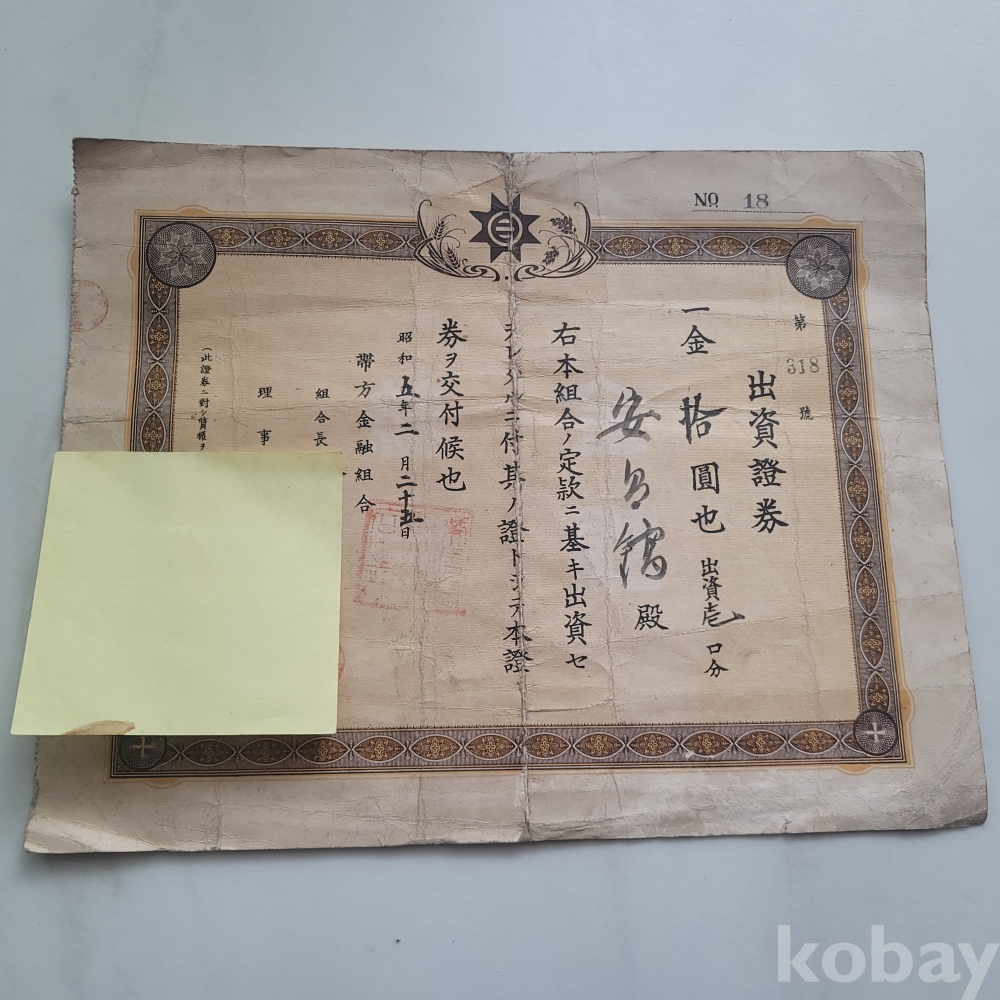 No 18
第 318 號
出資證券
一金拾圓也 出資壱口分
安
殿
右本組合ノ定款ニ基キ出資セ
ラレタルニ付其ノ證トシテ本證
券ヲ交付候也
昭和五年二月二十五日
帶方金融組合
組合長
理事
(此證券ニ對シ
kobay